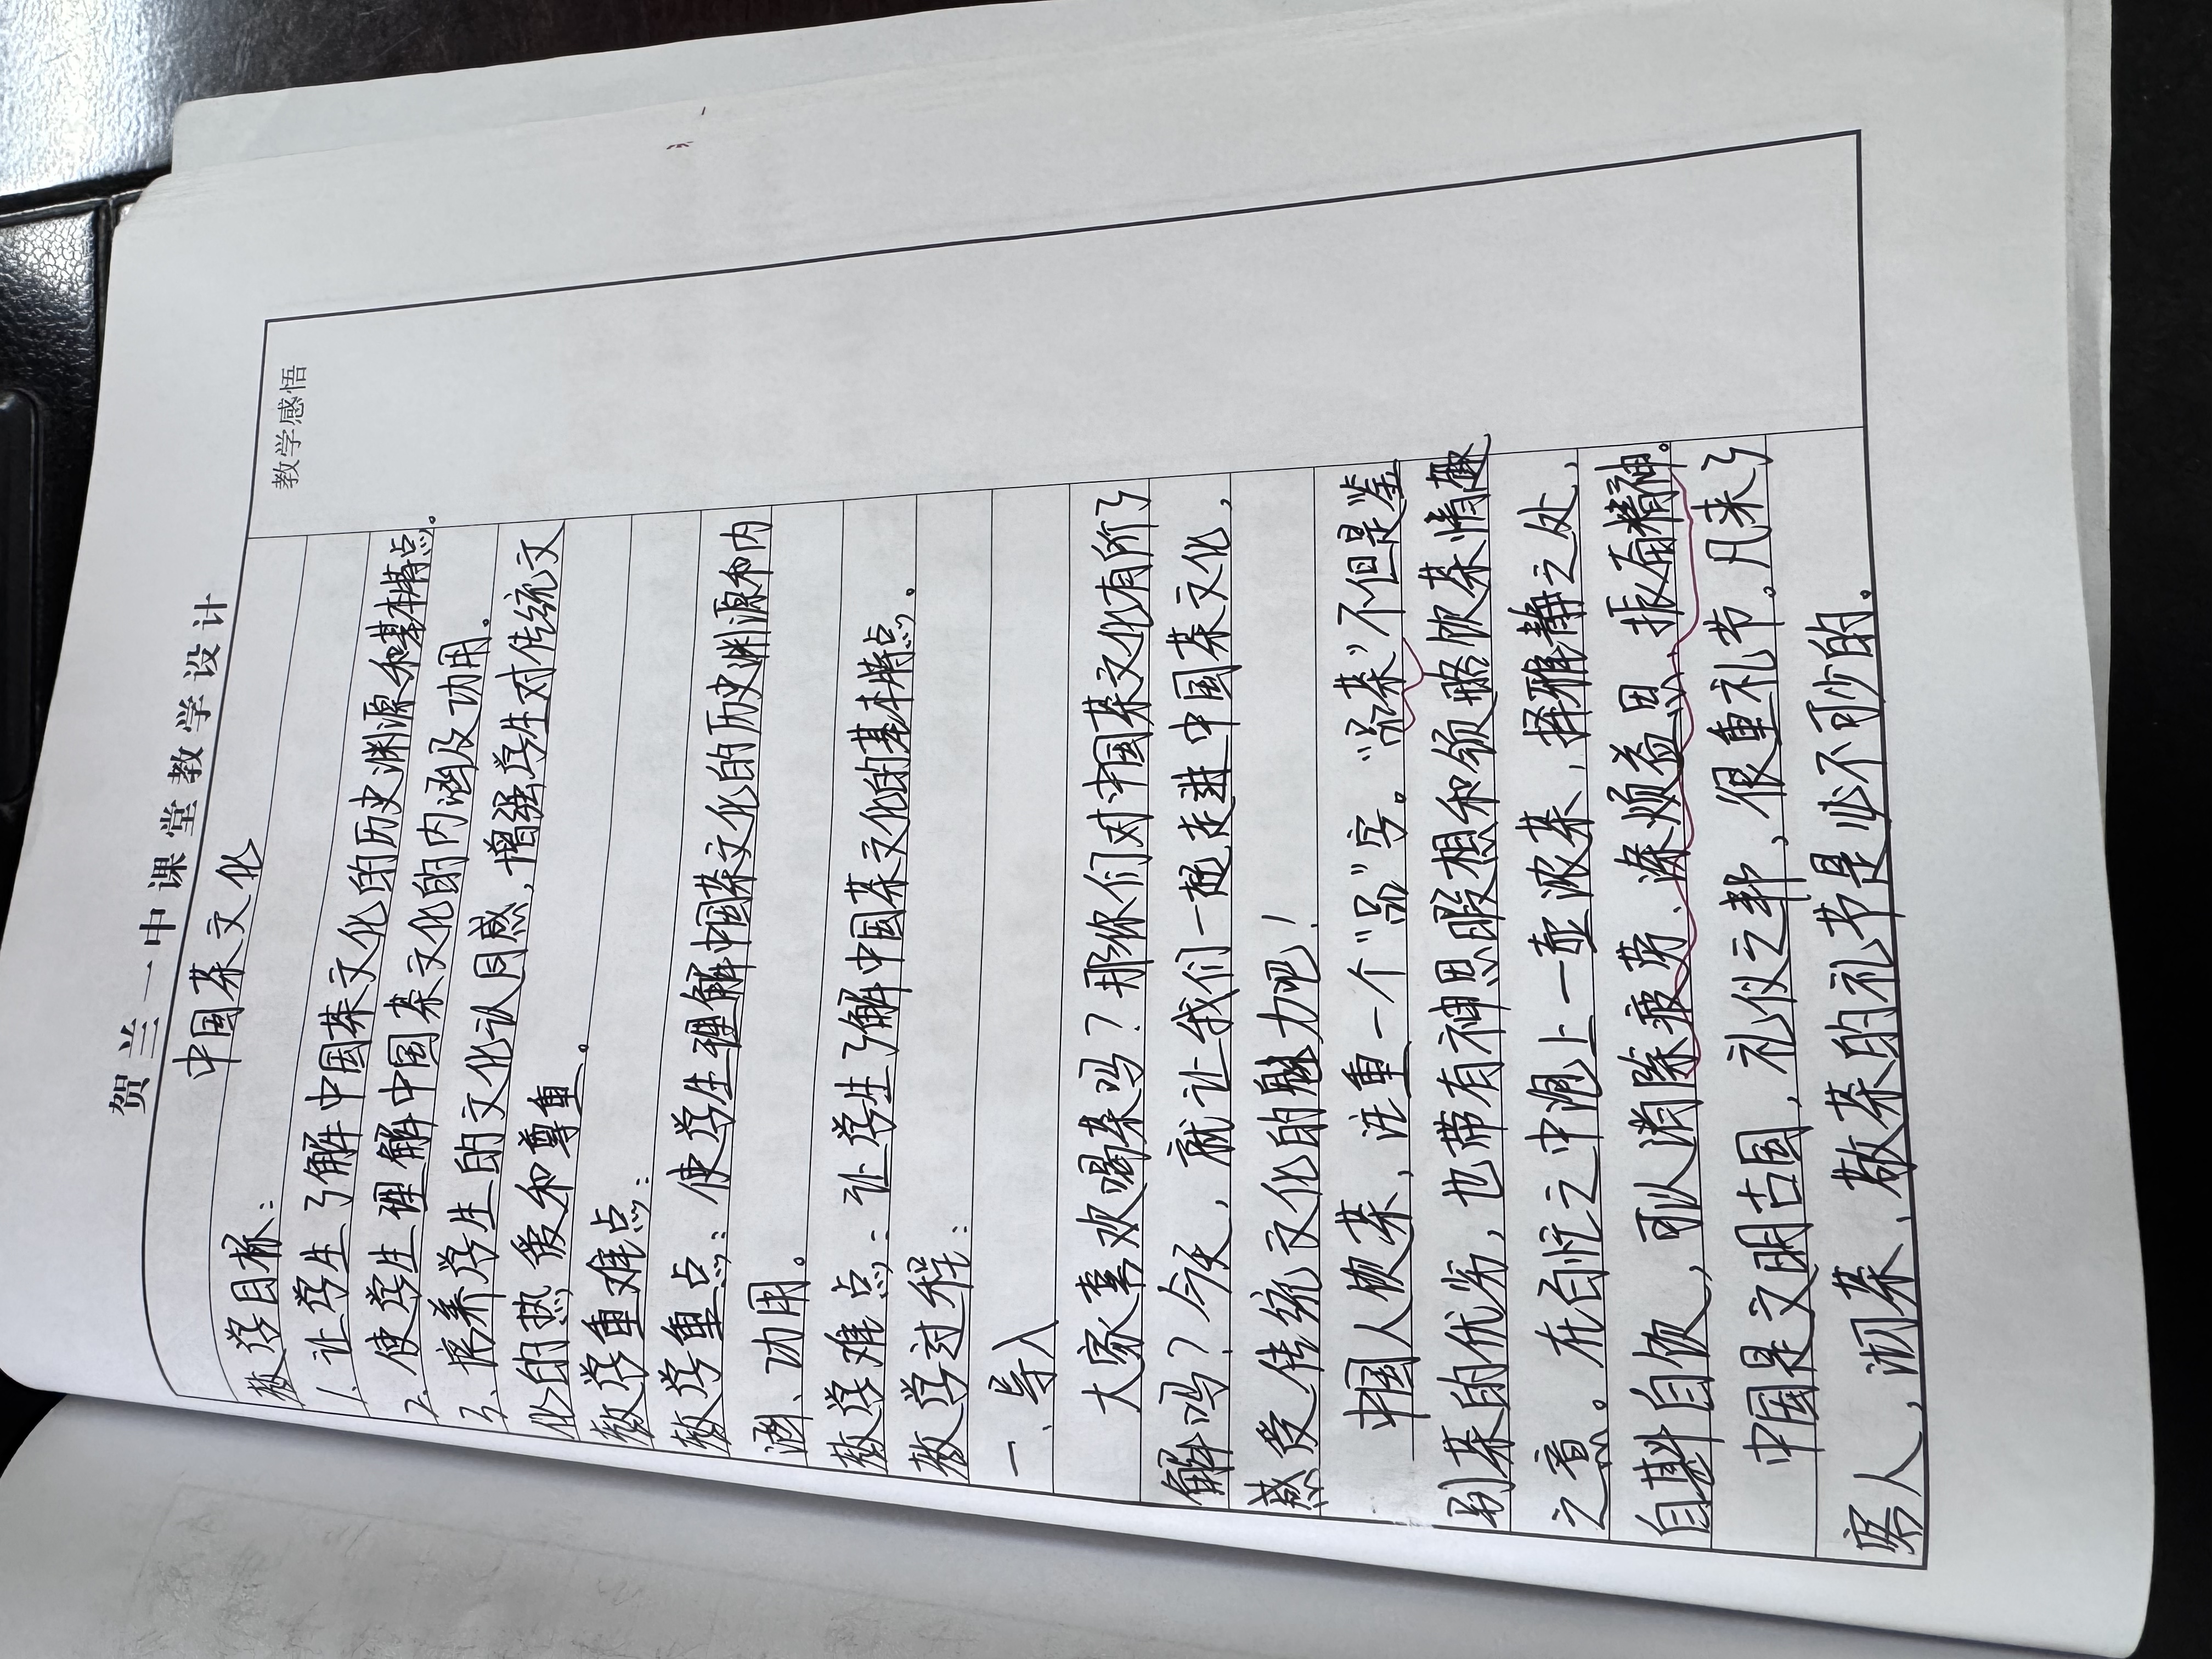 贺兰一中课堂教学设计
中国茶文化
教学感悟
教学目标：
1、让学生了解中国茶文化的历史渊源和基本特点。
2、使学生理解中国茶文化的内涵及功用。
3、培养学生的文化认同感，增强学生对传统文
化的热爱和尊重。
教学重难点：
教学重点：使学生理解中国茶文化的历史渊源和内
涵、功用。
教学难点：让学生了解中国茶文化的基本特点。
教学过程：
一、导入
大家喜欢喝茶吗？那你们对中国茶文化有所了
解吗？今天，就让我们一起走进中国茶文化，
感受传统文化的魅力吧！
中国人饮茶，注重一个“品”字。“品茶”不但是鉴
别茶的优劣，也带有神思遐想和领略饮茶情趣
之意。在百忙之中泡上一壶浓茶，择雅静之处，
自斟自饮，可以消除疲劳、涤烦益思、振奋精神。
中国是文明古国，礼仪之邦，很重礼节。凡来了
客人，沏茶、敬茶的礼节是必不可少的。